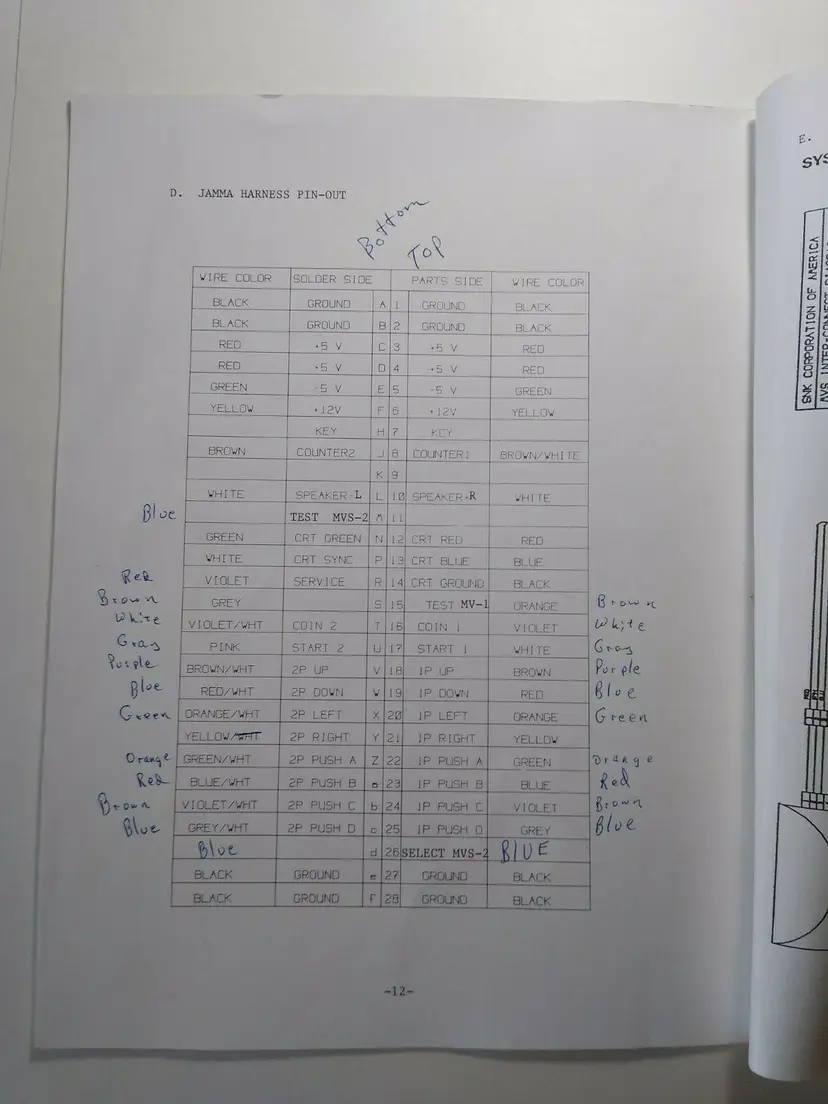 D. JAMMA HARNESS PIN-OUT
Bottom
Top
WIRE COLOR SOLDER SIDE PARTS SIDE WIRE COLOR
BLACK GROUND A 1 GROUND BLACK
BLACK GROUND B 2 GROUND BLACK
RED +5 V C 3 +5 V RED
RED +5 V D 4 +5 V RED
GREEN -5 V E 5 -5 V GREEN
YELLOW +12V F 6 +12V YELLOW
KEY H 7 KEY
BROWN COUNTER2 J 8 COUNTER1 BROWN/WHITE
K 9
WHITE SPEAKER-L L 10 SPEAKER-R WHITE
Blue TEST MVS-2 M 11
GREEN CRT GREEN N 12 CRT RED RED
WHITE CRT SYNC P 13 CRT BLUE BLUE
Red VIOLET SERVICE R 14 CRT GROUND BLACK
Brown GREY S 15 TEST MV-1 ORANGE Brown
White VIOLET/WHT COIN 2 T 16 COIN 1 VIOLET White
Gray PINK START 2 U 17 START 1 WHITE Gray
Purple BROWN/WHT 2P UP V 18 1P UP BROWN Purple
Blue RED/WHT 2P DOWN W 19 1P DOWN RED Blue
Green ORANGE/WHT 2P LEFT X 20 1P LEFT ORANGE Green
YELLOW/WHT 2P RIGHT Y 21 1P RIGHT YELLOW
Orange GREEN/WHT 2P PUSH A Z 22 1P PUSH A GREEN Orange
Red BLUE/WHT 2P PUSH B a 23 1P PUSH B BLUE Red
Brown VIOLET/WHT 2P PUSH C b 24 1P PUSH C VIOLET Brown
Blue GREY/WHT 2P PUSH D c 25 1P PUSH D GREY Blue
Blue d 26 SELECT MVS-2 BLUE
BLACK GROUND e 27 GROUND BLACK
BLACK GROUND F 28 GROUND BLACK
-12-
E.
SYS
SNK CORPORATION OF AMERICA